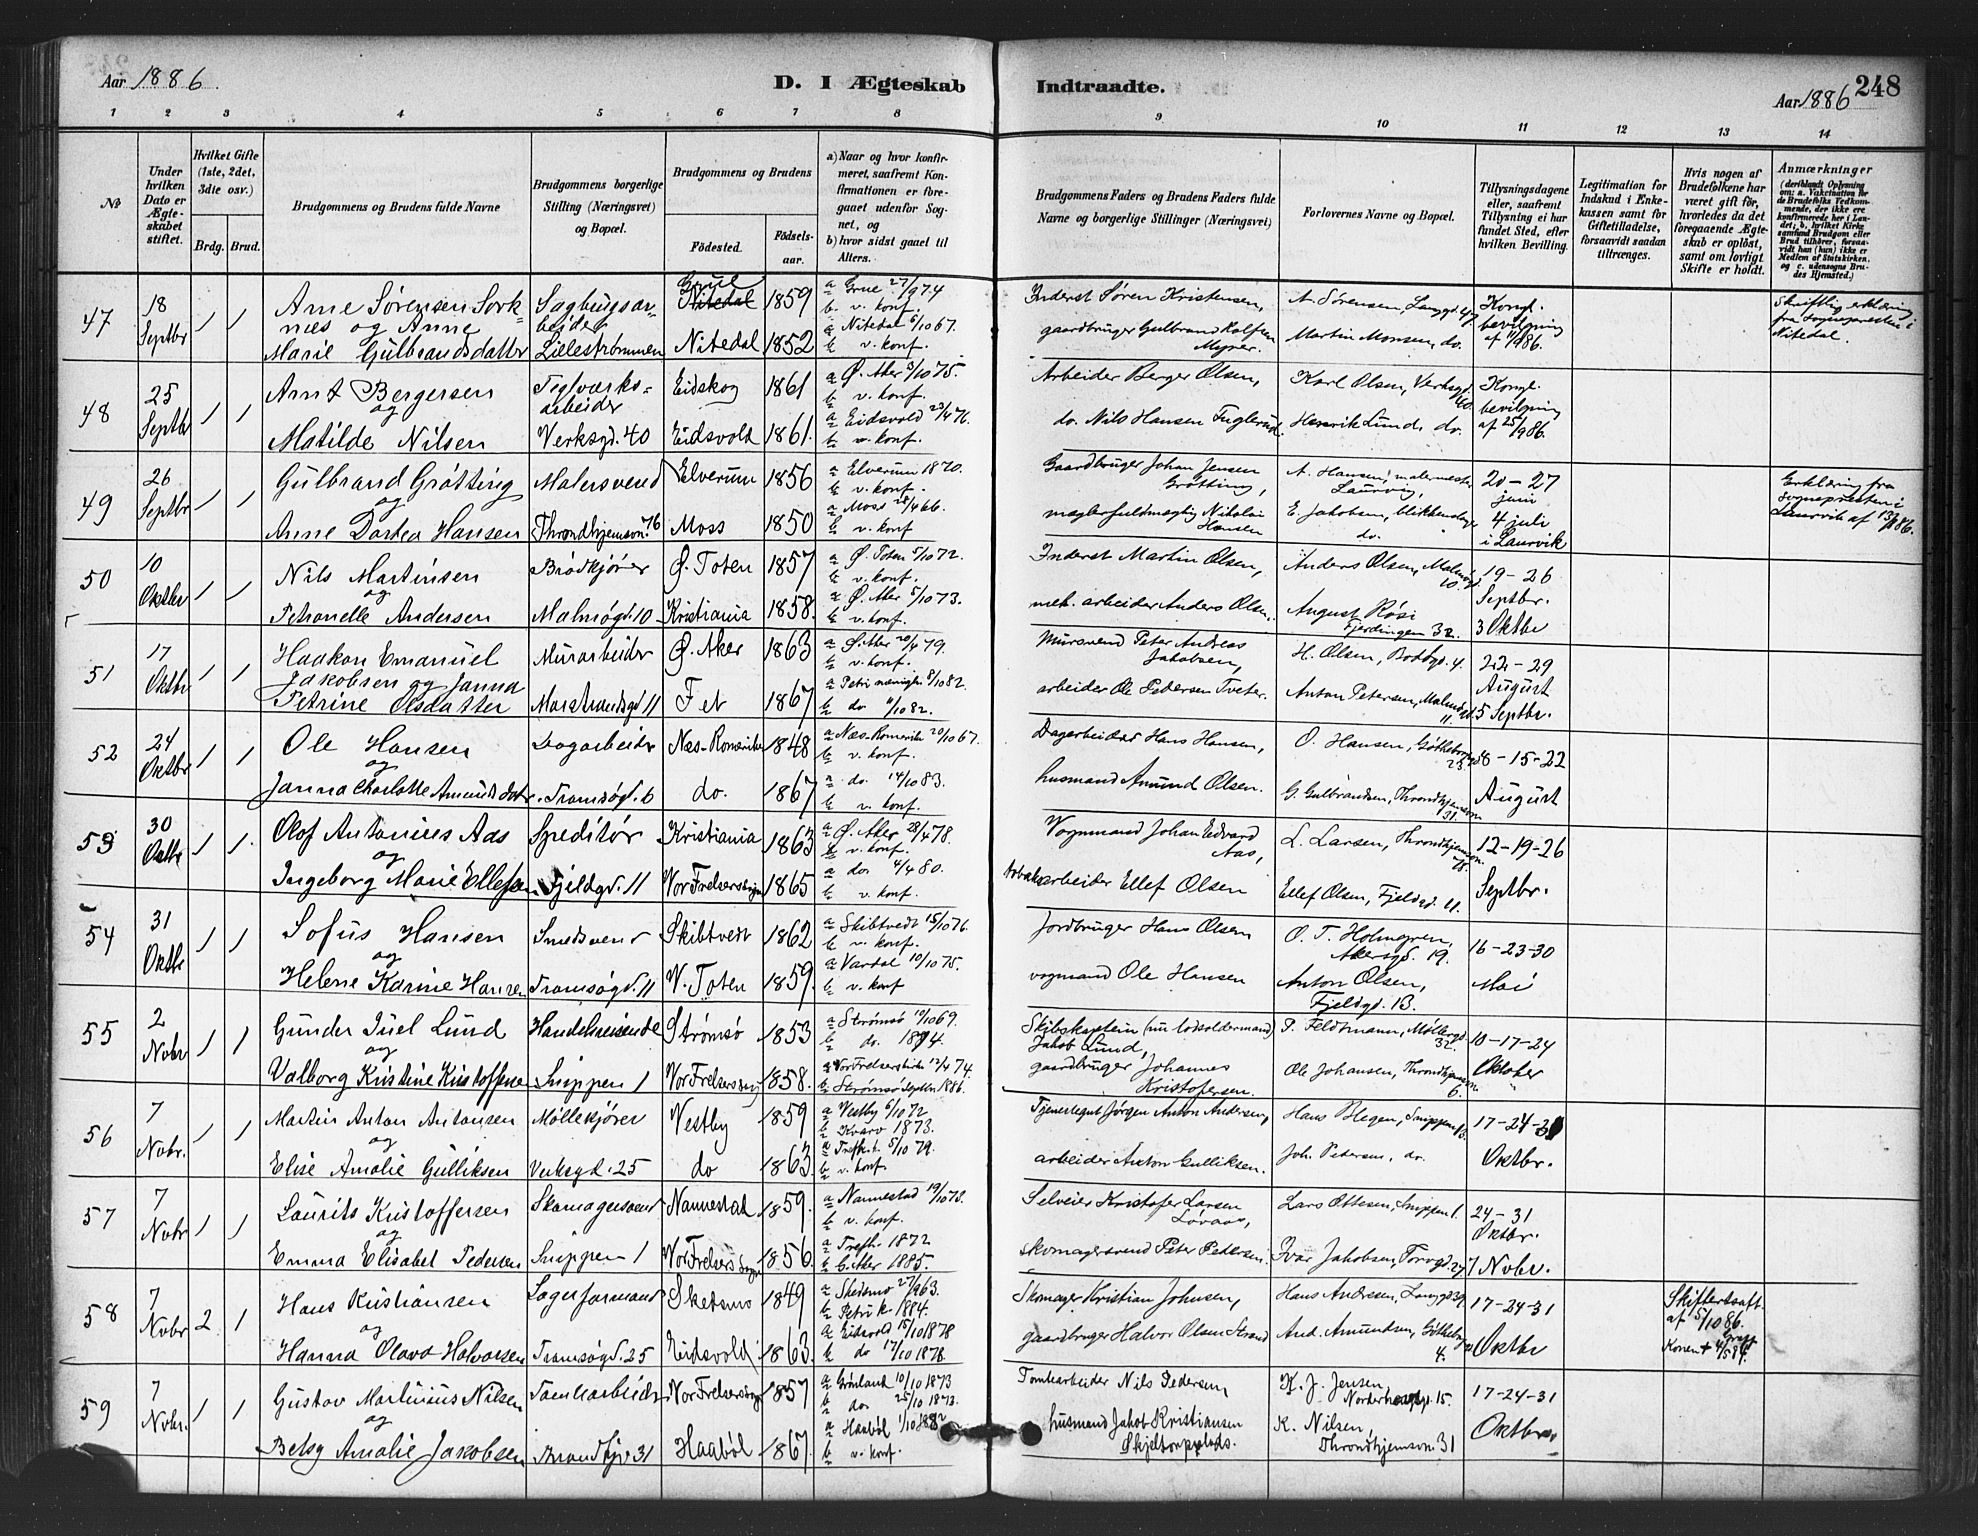 Aar 1886.
D. I Ægteskab Indtraadte.
Aar 1886
248
1 2 3 4 5 6 7 8 9 10 11 12 13 14
No
Under hvilken Dato er Ægteskabet stiftet.
Hvilket Gifte (1ste, 2det, 3die osv.)
Brdg. Brud.
Brudgommens og Brudens fulde Navne
Brudgommens borgerlige Stilling (Næringsvei) og Bopæl.
Brudgommens og Brudens
Fødested.
Fødselsaar.
a) Naar og hvor konfirmeret, saafremt Konfirmationen er foregaaet udenfor Sognet, og
b) hvor sidst gaaet til Alters.
Brudgommens Faders og Brudens Faders fulde Navne og borgerlige Stillinger (Næringsvei)
Forlovernes Navne og Bopæl.
Tillysningsdagene eller, saafremt Tillysning ei har fundet Sted, efter hvilken Bevilling.
Legitimation for Indskud i Enkekassen samt for Giftetilladelse, forsaavidt saadan tiltrænges.
Hvis nogen af Brudefolkene har været gift før, hvorledes da det foregaaende Ægteskab er opløst, samt om lovligt Skifte er holdt.
Anmærkninger
47 18 Septbr 1 1 Arne Sørensen Sorknæs og Anne Marie Gulbrandsdatter
Sagbrugsarbejder Lillestrømmen
Grue 1859
Nitedal 1852
a Grue 27/9 74
b v. konf.
a Nitedal 6/10 67.
b v. konf.
Inderst Søren Kristensen,
gaardbruger Gulbrand Kolfsen Myrer.
A. Sørensen, Langgd. 47.
Martin Monsen, do.
Kongl. bevilgning
Skriftlig erklæring fra sognepresten i Nitedal.
48 25 Septbr 1 1 Arnt Bergersen
og
Matilde Nilsen
Teglværksarbeider
Verksgd. 40
Eidskog 1861
Eidsvold 1861.
a Ø. Aker 3/10 75.
b v. konf.
a Eidsvold 23/4 76.
b v. konf.
Arbeider Berger Olsen,
do. Nils Hansen Fuglerud.
Karl Olsen, Verksgd. 40.
Henrik Lund, do.
Kongl. bevilgning af 25/9 86.
49 26 Septbr 1 1 Gulbrand Grøtting
og
Anne Dortea Hansen
Malersvend
Throndhjemsvn. 76
Elverum 1856
Moss 1850
a Elverum 1870.
b v. konf.
a Moss 28/4 66.
b v. konf
Gaardbruger Johan Jensen Grøtting,
mæglerfuldmægtig Nikolai Hansen
A. Hansen, malermester Laurvig,
E. Jakobsen, blikkenslager do.
20-27 juni
4 juli
i Laurvik
Erklæring fra sognepresten i Laurvik
50 10 Oktbr 1 1 Nils Martinsen
og
Petronelle Andersen
Brødkjører
Malmøgd. 10
Ø. Toten 1857
Kristiania 1858.
a Ø. Toten 5/10 72.
b v. konf.
a Ø. Aker 5/10 73.
b v. konf.
Inderst Martin Olsen,
mek. arbeider Anders Olsen.
Anders Olsen, Malmøgd. 10.
August Røsi
Fjerdingen 32.
19-26 Septbr.
3 Oktbr
51 17 Oktbr 1 1 Haakon Emanuel
Jakobsen og Janna
Petrine Olsdatter
Murarbeider
Marstrandsgd. 11
Ø. Aker 1863
Fet 1867
a Ø. Aker 20/4 79.
b v. konf.
b do 11/10 82.
Mursvend Peter Andreas Jakobsen,
arbeider Ole Pedersen Tveter.
H. Olsen, Bodøgd. 4.
Anton Petersen, Malmøgd. 11.
22-29 August
5 Septbr.
52 24 Oktbr 1 1 Ole Hansen
og
Janna Charlotte Amundsdatr.
Dagarbeider
Tromsøgd. 6
Næs-Romerike 1848
do. 1867
a Næs-Romerike 20/10 67.
b v. konf.
a do. 14/10 83.
b v. konf.
Dagarbeider Hans Hansen,
husmand Amund Olsen.
O. Hansen, Gøtheborggd. 23.
G. Gulbrandsen, Throndhjemsvn 31.
8-15-22 August
53 30 Oktb 1 1. Olof Antonius Aas
og
Ingeborg Marie Ellefsen
Speditør
Fjeldgd. 11
Kristiania 1863
Vor Frelsers sogn 1865
a Ø. Aker 28/4 78.
b v. konf.
a do 4/4 80.
b v. konf.
Vognmand Johan Edvard Aas,
arbeider Ellef Olsen
L. Larsen, Throndhjemsvn. 78.
Ellef Olsen, Fjeldgd. 11.
12-19-26 Septbr.
54 31 Oktb 1 1 Sofus Hansen
og
Helene Karine Hansen
Smedsvend
Tromsøgd. 11
Skibtvedt 1862
V. Toten 1859.
a Skibtvedt 15/10 76.
b v. konf.
a Vardal 10/10 75.
b v. konf
Jordbruger Hans Olsen
vognmand Ole Hansen
O. T. Holmgren, Akersgd. 19.
Anton Olsen, Fjeldgd. 13.
16-23-30 Mai
55 2 Novbr 1 1 Gunder Juel Lund
og
Valborg Kristine Kristoffersen
Handelsreisende
Snippen 1
Strømsø 1853
Vor Frelsers sogn 1858.
a Strømsø 19/10 69.
b do. 1874.
a Vor Frelsers kirke 12/4 74.
b Strømsø Septbr 1886.
Skibskaptein (nu lodsoldermand) Jakob Lund,
gaardbruger Johannes Kristofersen.
P. Feldtmann, Møllergd. 32.
Ole Johansen, Throndhjemsvn 6.
10-17-24 Oktober
56 7 Novbr. 1 1 Martin Anton Antonsen
og
Elise Amalie Gulliksen
Møllekjører
Verksgd. 25
Vestby 1859
do 1863
a Vestby 6/10 72
b Kraro 1873.
a Trefk. 5/10 79.
b v. konf.
Tjenestegut Jørgen Anton Andersen,
arbeider Anton Gulliksen.
Hans Blegen, Snippen 13.
Joh. Pedersen, do.
17-24-31 Oktbr.
57 7 Novbr 1 1 Laurits Kristoffersen
og
Emma Elisabet Pedersen
Skomagersvend
Snippen 1
Nannestad 1859.
Vor Frelsers sogn 1856
a Nannestad 19/10 73.
b v. konf.
a Trefk. 1872
b G. Aker 1885.
Selveier Kristofer Larsen Løvaas,
skomagersvend Peter Petersen.
Lars Ottesen, Snippen 1.
Ivar Jakobsen, Torvgd. 27
24-31 Oktbr.
7 Novbr.
58 7 Novbr 2 1 Hans Kristiansen
og
Hanna Olava Halvorsen
Lagerformand
Tromsøgd. 25
Skedsmo 1849
Eidsvold 1863.
a Skedsmo 27/9 63.
b Petri k. 1884.
a Eidsvold 15/10 1878
b do 17/10 1878.
Skomager Kristian Johnsen,
gaardbruger Halvor Olsen Strand
Hans Andresen, Langgd. 39
And. Amundsen, Gøtheborggd 4.
17-24-31 Oktbr
Skifteratt. af 5/10 86.
Konen + 4/5 84.
59 7 Novbr. 1 1 Gustav Martinius Nilsen
og
Betsy Amalie Jakobsen
Tomtearbeider
Throndhjv. 31
Vor Frelsers sogn 1857
Haabøl 1867.
a Grønland 10/10 1873
b do. 25/10 1873.
a Haabøl 1/10 1882
b v. konf
Tomtearbeider Nils Pedersen,
husmand Jakob Kristiansen Skjeltorpplads.
K. J. Jensen, Norderhovgd. 15.
K. Nilsen, Throndhjemsvn. 31
17-24-31 Oktbr